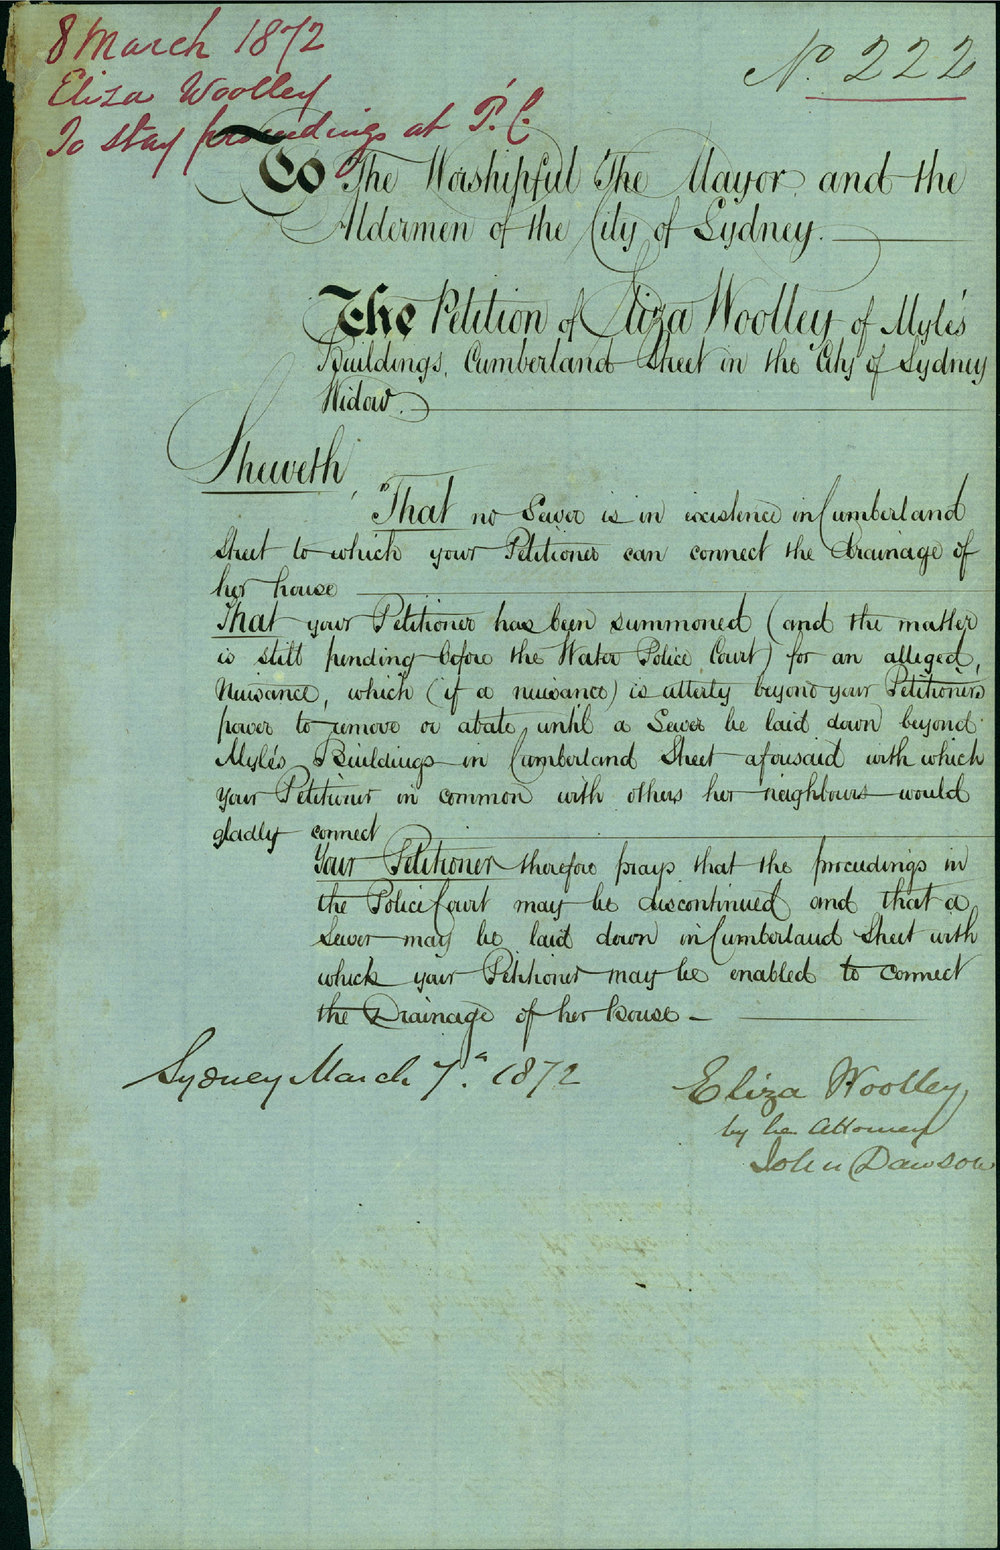 8 March 1872
Eliza Woolley
To stay proceedings at P.C.
No. 222
To The Worshipful The Mayor and the
Aldermen of the City of Sydney.
The Petition of Eliza Woolley of Myle's
Buildings, Cumberland Street in the City of Sydney
Widow.
Sheweth,
That no Sewer is in existence in Cumberland
Street to which your Petitioner can connect the drainage of
her house
That your Petitioner has been summoned (and the matter
is still pending before the Water Police Court) for an alleged,
Nuisance, which (if a nuisance) is utterly beyond your Petitioners
power to remove or abate until a Sewer be laid down beyond
Myle's Buildings in Cumberland Street aforesaid with which
your Petitioner in common with others her neighbours would
gladly connect
Your Petitioner therefore prays that the proceedings in
the Police Court may be discontinued and that a
Sewer may be laid down in Cumberland Street with
which your Petitioner may be enabled to connect
the Drainage of her house –
Sydney March 7th 1872
Eliza Woolley
by her Attorney
John Dawson